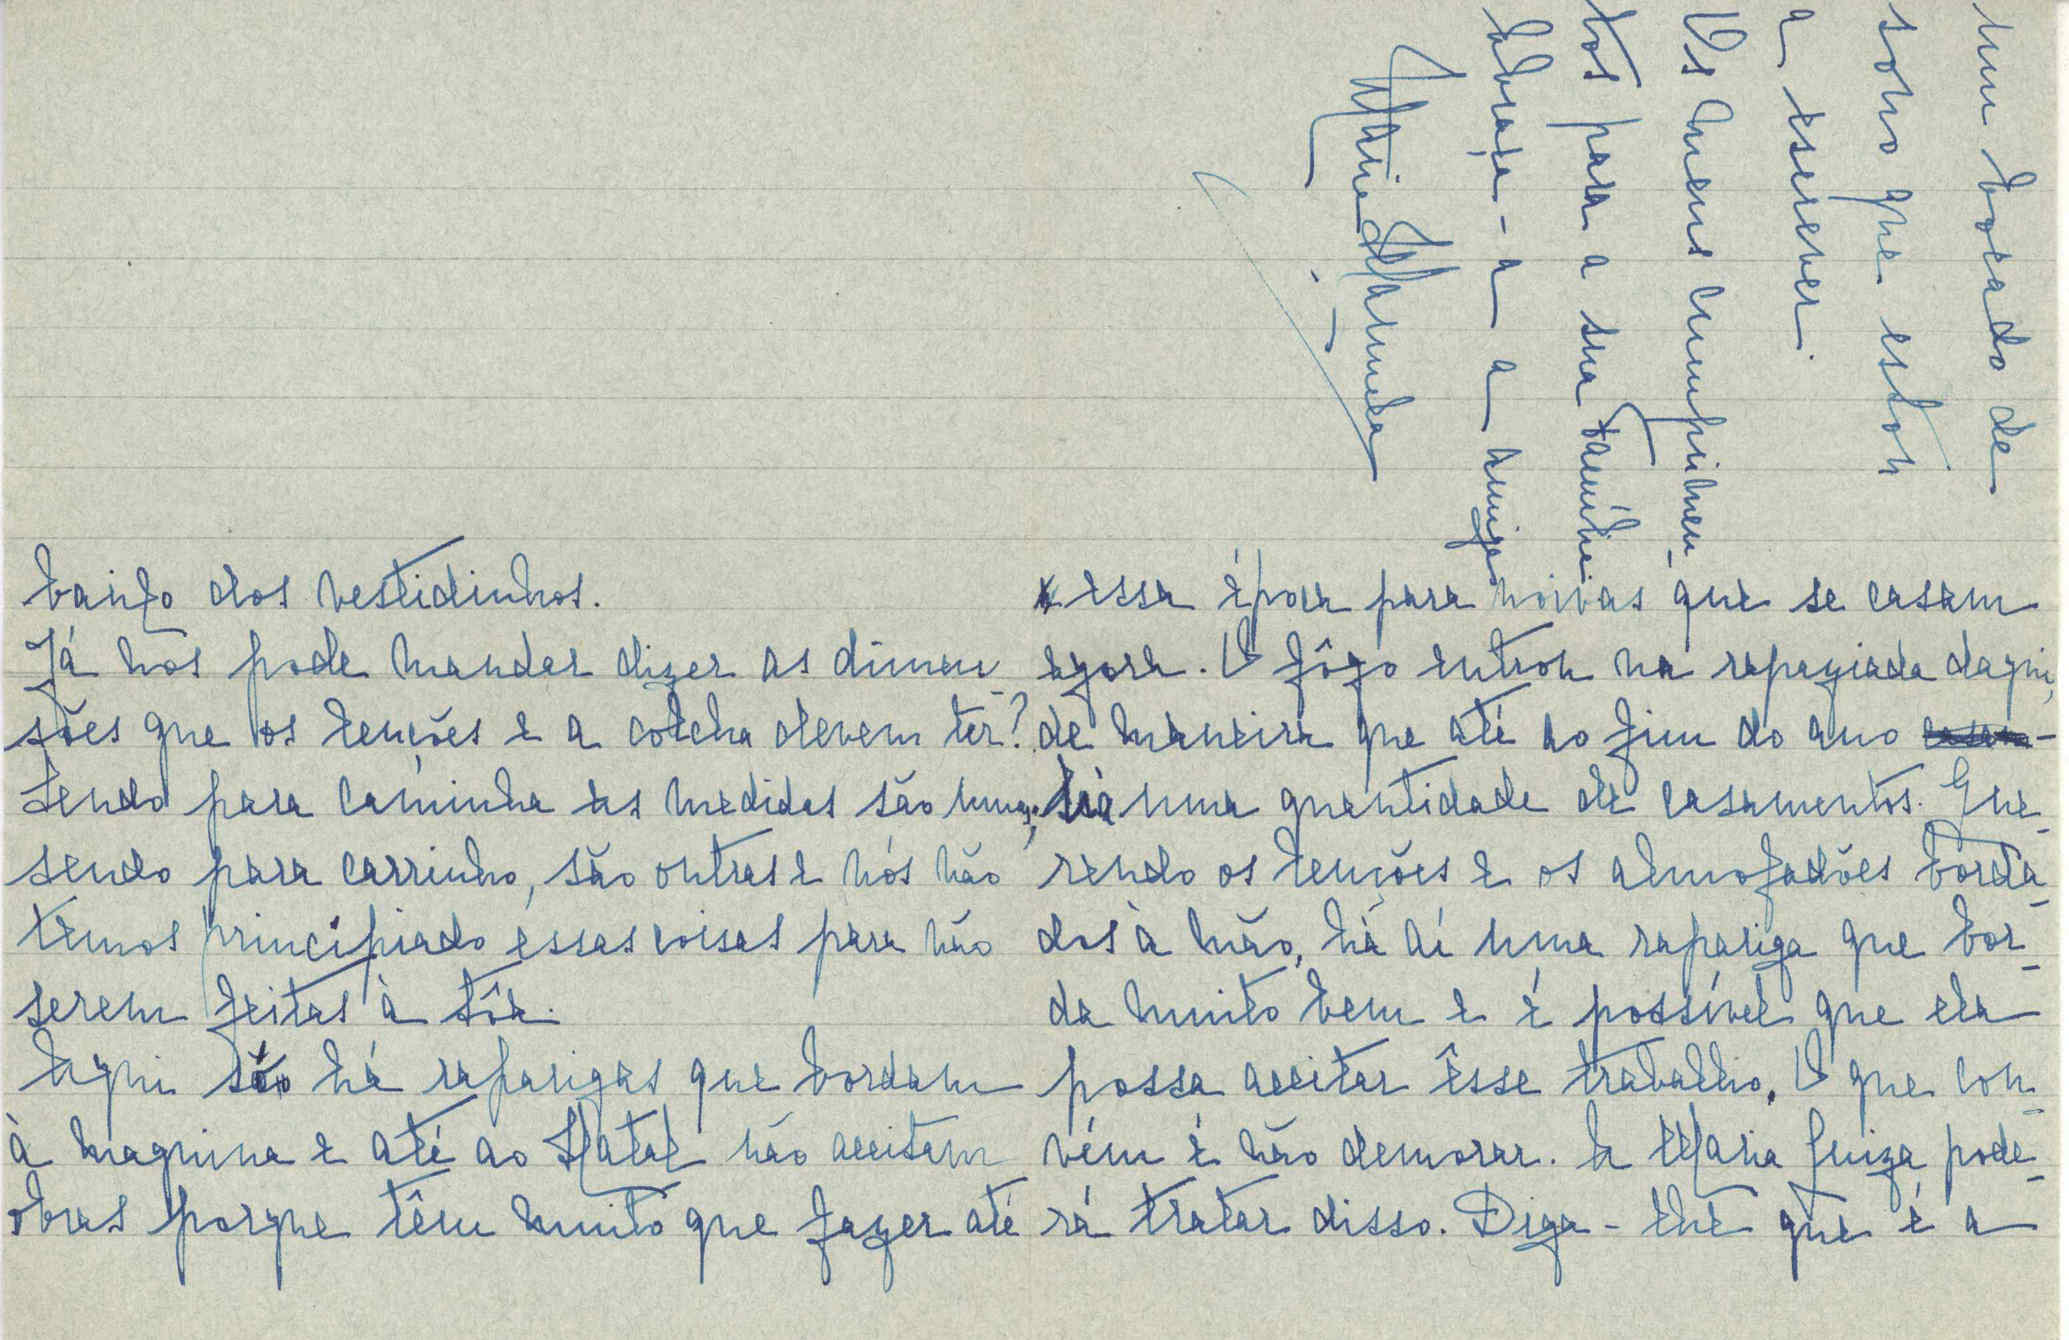 baixo dos vestidinhos.
Já nos pode mandar dizer as dimen-
sões que os lenções e a colcha devem ter?
Sendo para caminha as medidas são umas,
sendo para carrinho, são outras e nós não
temos principiado essas coisas para não
serem feitas à tôa.
Aqui só há raparigas que bordam
à maquina e até ao Natal não aceitam
obras porque têm muito que fazer até
essa época para noivas que se casam
agora. O fôgo entrou na rapaziada daqui,
de maneira que até ao fim do ano
há uma quantidade de casamentos. Que-
rendo os lenções e os almofadões borda-
dos à mão, há aí uma rapariga que bor-
da muito bem e é possível que ela
possa aceitar êsse trabalho. O que con-
vém é não demorar. A Maria Luiza pode-
rá tratar disso. Diga-lhe que é a
um bocado de
sono que estou
a escrever.
Os meus cumprimen-
tos para a sua família
abraça-a a amiga
Maria